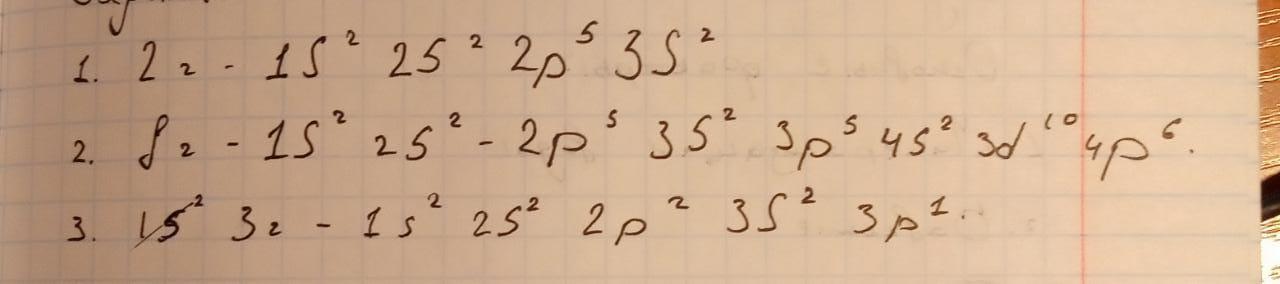 1. 2г - 1S² 2S² 2p⁵ 3S²
2. 8г - 1S² 2S² - 2p⁵ 3S² 3p⁵ 4S² 3d¹⁰ 4p⁶.
3. 1S² 3г - 1s² 2S² 2p² 3S² 3p¹.